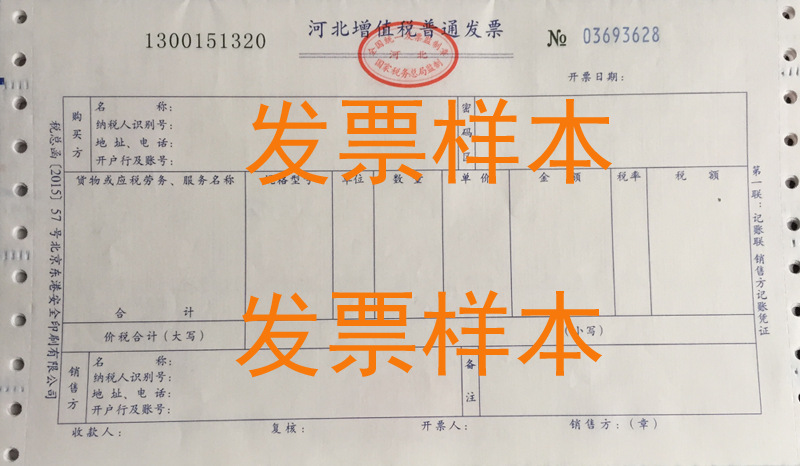 河北增值税普通发票
1300151320
№ 03693628
全国统一发票监制章
河北
国家税务总局监制
开票日期:
购买方
名 称:
纳税人识别号:
地 址、电 话:
开户行及账号:
密码区
发票样本
货物或应税劳务、服务名称 规格型号 单位 数 量 单 价 金 额 税率 税 额
合 计
价税合计(大写) (小写)
发票样本
销售方
名 称:
纳税人识别号:
地 址、电 话:
开户行及账号:
备注
收款人: 复核: 开票人: 销售方:(章)
税总函〔2015〕57号北京东港安全印刷有限公司
第一联:记账联 销售方记账凭证